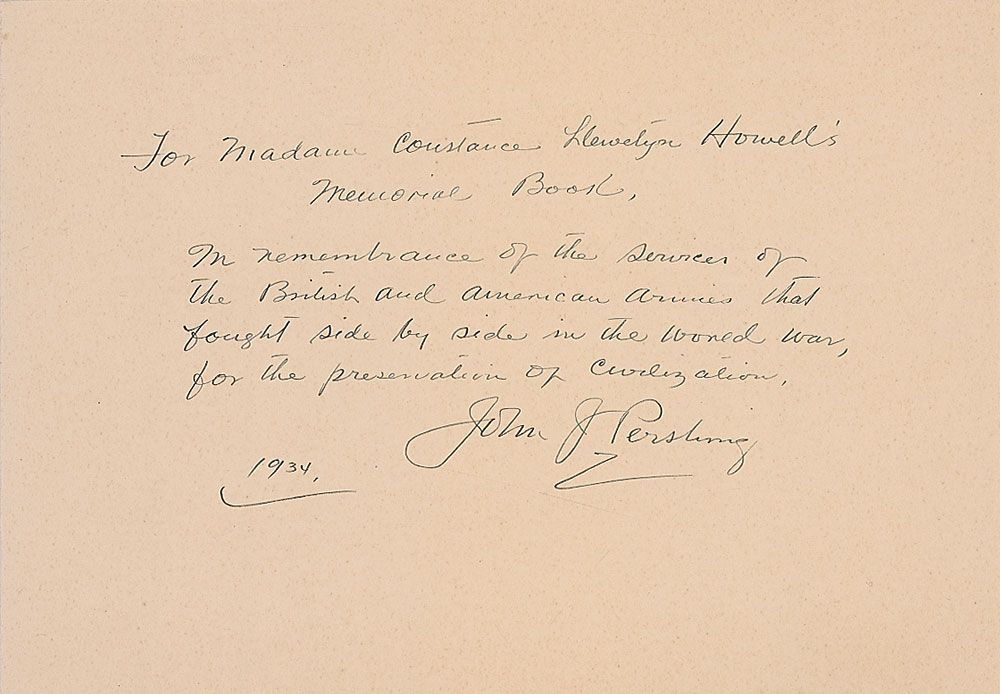 For Madame Constance Llewelyn Howell's
Memorial Book,
In remembrance of the services of
the British and American Armies that
fought side by side in the World War,
for the preservation of civilization.
John J Pershing
1934,